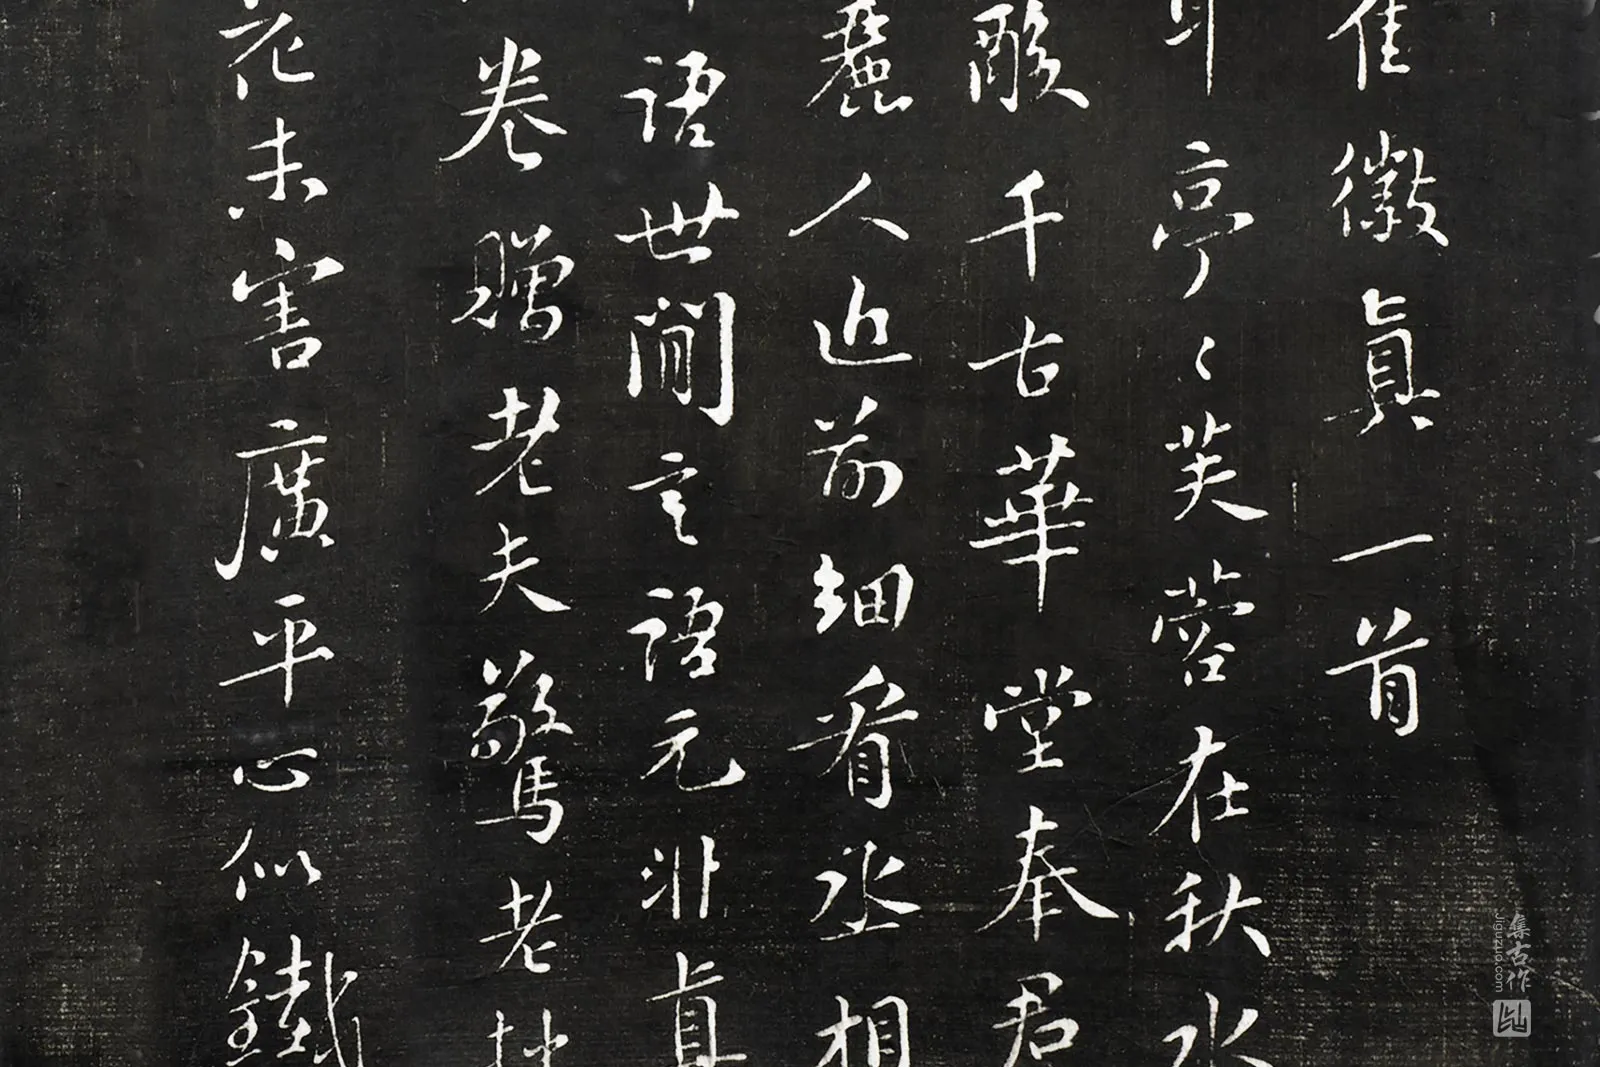 崔徽真一首
耳亭〻芙蓉在秋水
酸千古華堂奉君
麗人近前細看丞相
語世間言語元非真
卷贈老夫驚老拙
花未害廣平心似鐵
集古作
jiguzuo.com